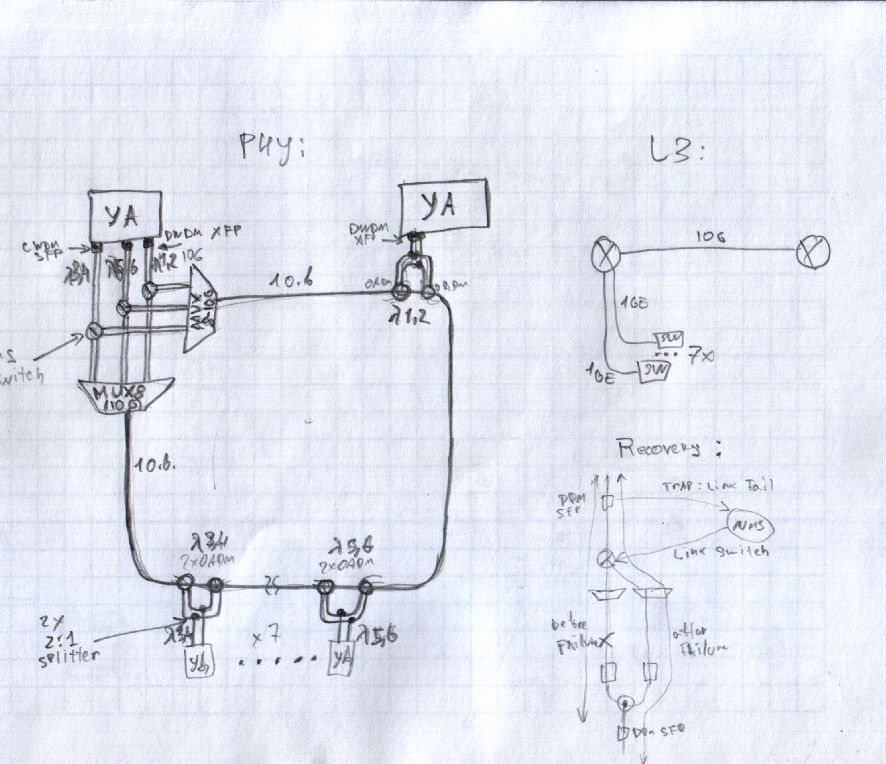 PHY:
L3:
УА
УА
CWDM
SFP
DWDM XFP
DWDM
XFP
λ3,4
λ5,6
λ1,2
10G
MUX8
+10G
10.в.
OADM
OADM
λ1,2
witch
MUX8
(10G)
10.в.
10G
1GE
SW
... 7x
1GE
SW
Recovery:
DDM
SFP
TRAP: Link Fail
NMS
Link Switch
before
Failure
after
Failure
DDM SFP
λ3,4
2xOADM
λ5,6
2xOADM
2x
2:1
splitter
λ3,4
x7
λ5,6
УА
УА